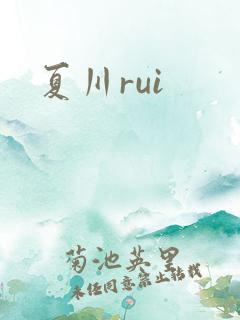 夏川rui
菊池英里
未经同意禁止转载